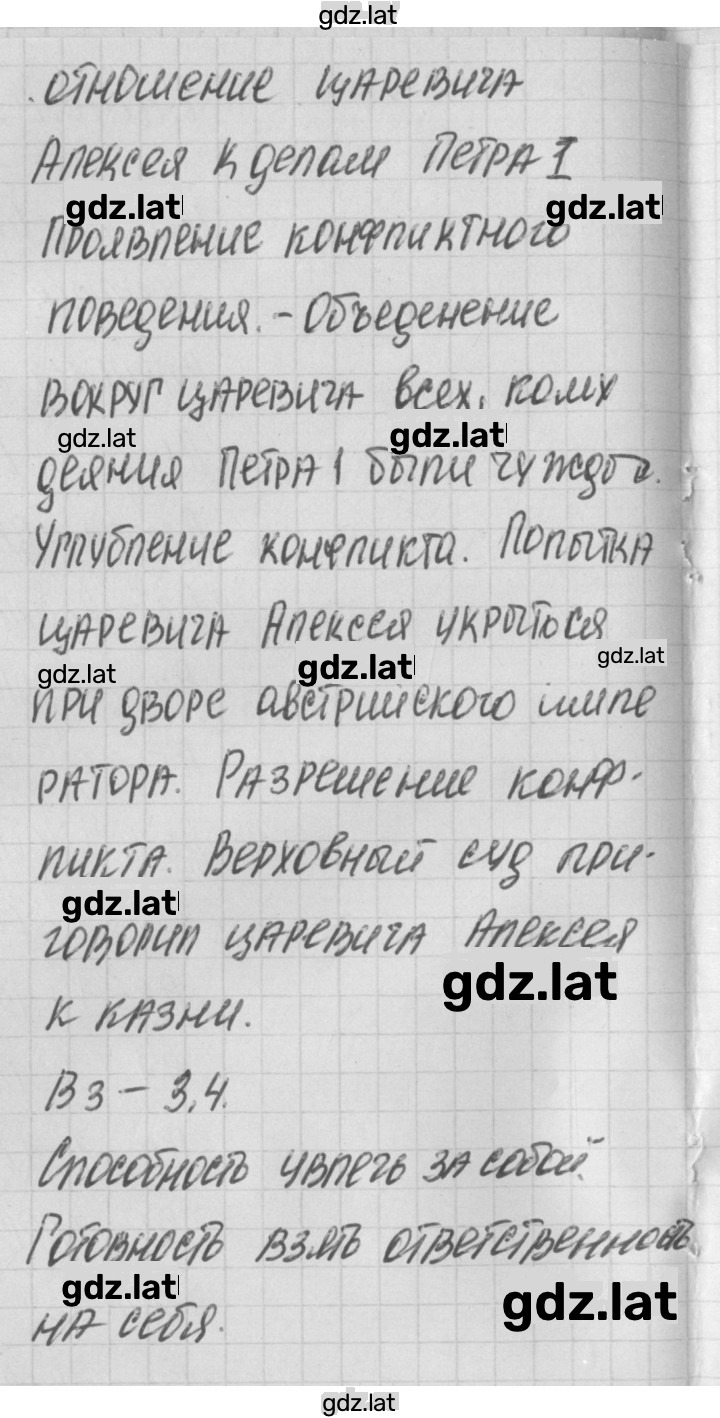 gdz.lat
отношение царевича
Алексея к делам Петра I
gdz.lat gdz.lat
Проявление конфликтного
поведения. - Объеденение
вокруг царевича всех, кому
gdz.lat gdz.lat
деяния Петра 1 были чужды.
Углубление конфликта. Попытка
царевича Алексея укрыться
gdz.lat gdz.lat gdz.lat
при дворе австрийского импе
ратора. Разрешение конф-
ликта. Верховный суд при-
gdz.lat
говорил царевича Алексея
gdz.lat
к казни.
В3 - 3,4.
Способность увлечь за собой.
Готовность взять ответственность
gdz.lat gdz.lat
на себя.
gdz.lat